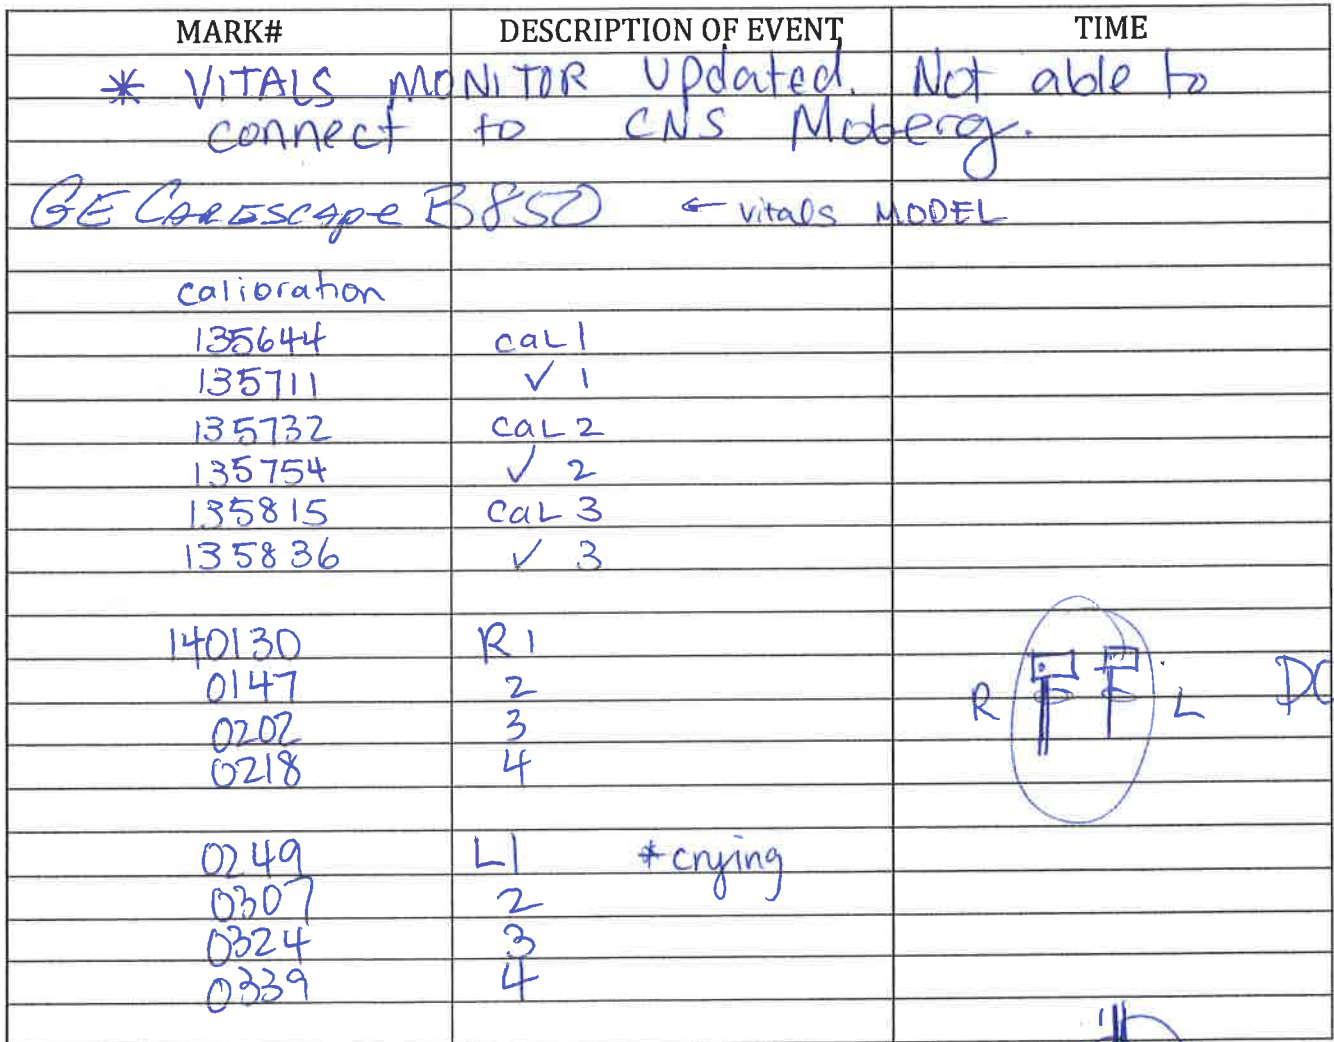 MARK# DESCRIPTION OF EVENT TIME
* VITALS MONITOR Updated. Not able to
connect to CNS Moberg.
GE CARESCAPE B850 ← vitals MODEL
calibration
135644 caL 1
135711 ✓ 1
135732 caL 2
135754 ✓ 2
135815 caL 3
135836 ✓ 3
140130 R 1
0147 2
R L
0202 3
0218 4
0249 L1 *crying
0307 2
0324 3
0339 4